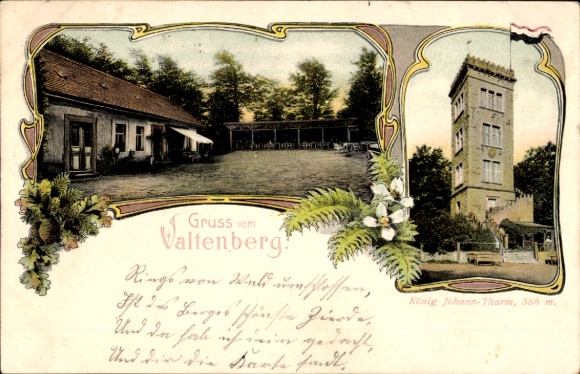 Gruss vom
Valtenberg.
König Johann-Thurm, 586 m.
Rings von Wald umschlossen,
Ist des Berges schönste Zierde,
Und da hab ich dein gedacht,
Und dir die Karte sandt.